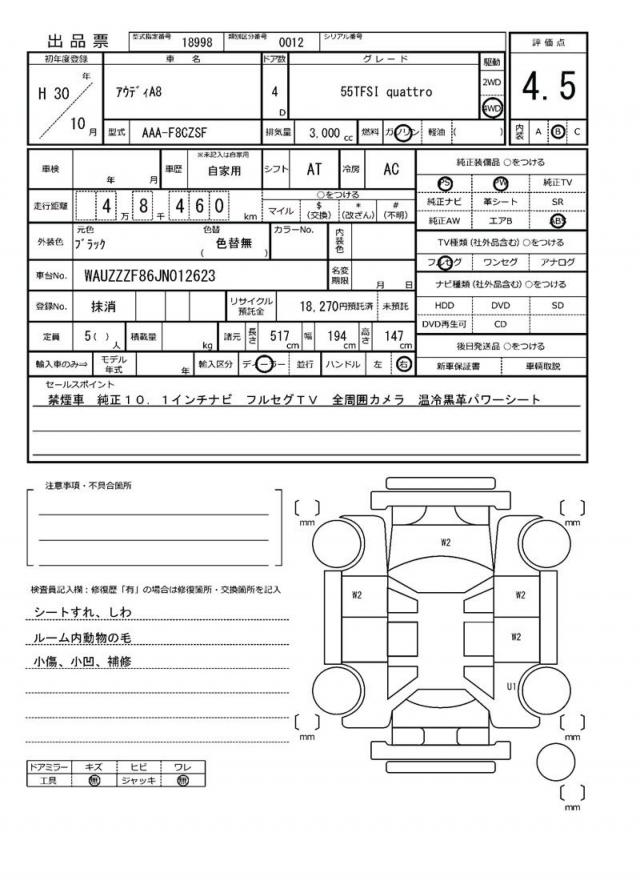 出品票 型式指定番号 18998 類別区分番号 0012 シリアル番号
評価点
4.5
初年度登録 車名 ドア数 グレード 駆動
H 30 年 10 月
アウディA8 4 D 55TFSI quattro 2WD 4WD
型式 AAA-F8CZSF 排気量 3,000 cc 燃料 ガソリン 軽油 ( )
内装 A B C
車検 年 月 車歴 ※未記入は自家用 自家用 シフト AT 冷房 AC
走行距離 4 万 8 千 4 6 0 km
○をつける
マイル $ (交換) * (改ざん) # (不明)
外装色 元色 ブラック 色替 ( 色替無 ) カラーNo. 内装色
車台No. WAUZZZF86JN012623 名変期限 月 日
登録No. 抹消 リサイクル預託金 18,270円預託済 未預託
定員 5( ) 人 積載量 kg 諸元 長さ 517 cm 幅 194 cm 高さ 147 cm
輸入車のみ⇒ モデル年式 年 輸入区分 ディーラー 並行 ハンドル 左 右
純正装備品 ○をつける
PS PW 純正TV
純正ナビ 革シート SR
純正AW エアB ABS
TV種類 (社外品含む) ○をつける
フルセグ ワンセグ アナログ
ナビ種類 (社外品含む) ○をつける
HDD DVD SD
DVD再生可 CD
後日発送品 ○をつける
新車保証書 車輌取説
セールスポイント
禁煙車 純正10.1インチナビ フルセグTV 全周囲カメラ 温冷黒革パワーシート
注意事項・不具合箇所
検査員記入欄：修復歴「有」の場合は修復箇所・交換箇所を記入
シートすれ、しわ
ルーム内動物の毛
小傷、小凹、補修
ドアミラー キズ ヒビ ワレ
工具 無 ジャッキ 無
[ ] mm
[ ] mm
W2
W2
W2
W2
U1
[ ] mm
[ ] mm
[ ] mm